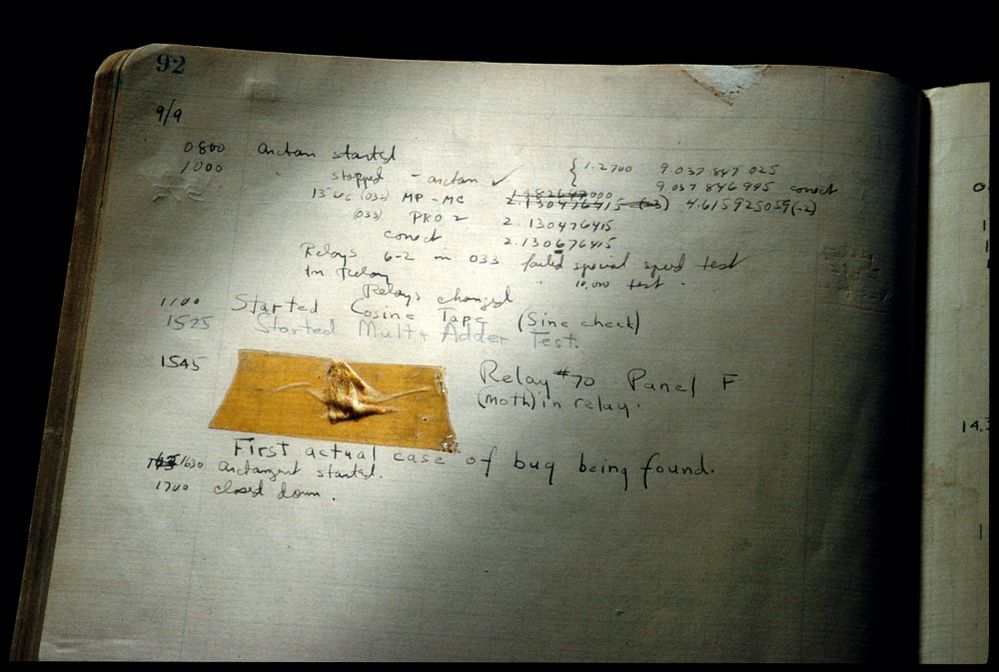 92
9/9
0800 arctan started
1000 stopped - arctan ✓ { 1.2700 9.037 847 025
9.037 846 995 correct
13"uc (032) MP - MC 2.130476415 (-3) 4.615925059(-2)
(033) PRO 2 2.130476415
correct 2.130676415
Relays 6-2 in 033 failed special speed test
In Relay " 10,000 test .
Relays changed
1100 Started Cosine Tape (Sine check)
1525 Started Mult + Adder Test.
1545 Relay #70 Panel F
(moth) in relay.
First actual case of bug being found.
1630 arctangent started.
1700 closed down.
14.